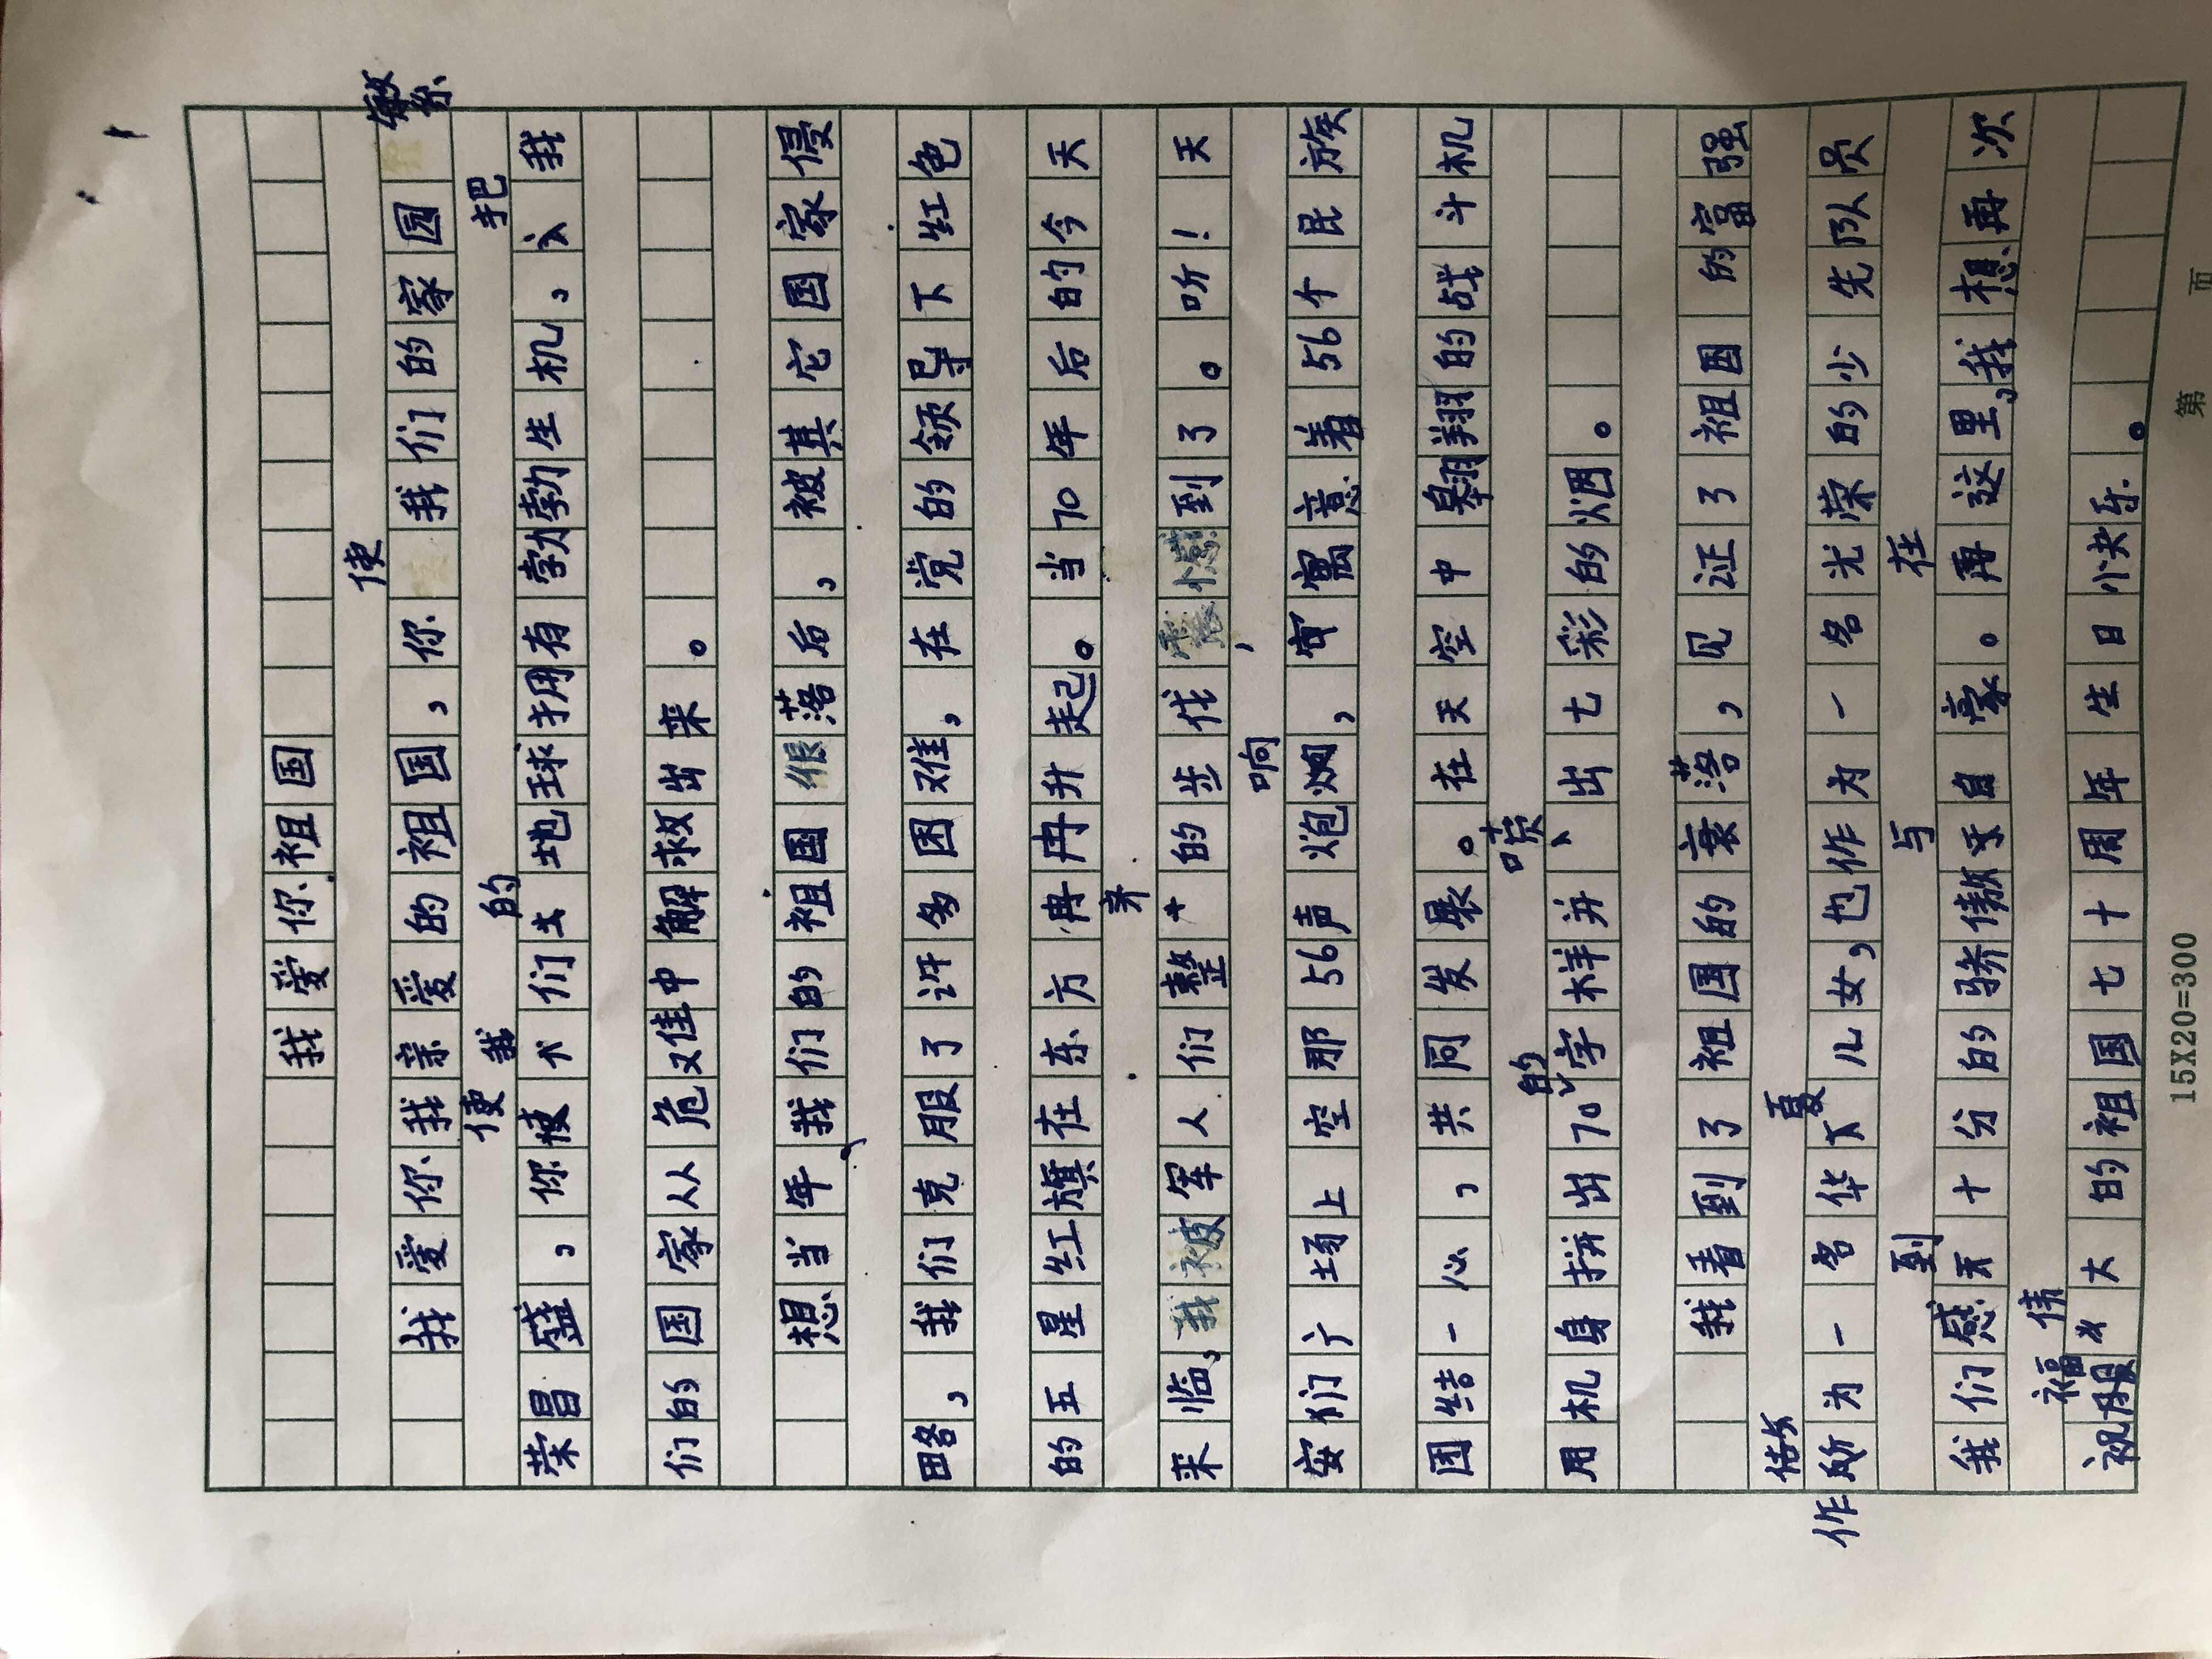 我爱你祖国
我爱你我亲爱的祖国，你使我们的家园繁
荣昌盛，你使我们的地球拥有勃勃生机，把我
们的国家从危难中解救出来。
想当年，我们的祖国很落后，被其它国家侵
略，我们克服了许多困难，在党的领导下红色
的五星红旗在东方冉冉升起。当70年后的今天
来临，我被军人们整齐的步伐，震憾到了。听！天
安们广场上空那56声炮响，寓意着56个民族
团结一心，共同发展。在天空中翱翔的战斗机
用机身拼出70的字样并喷出七彩的烟。
我看到了祖国的衰落，见证了祖国的富强
作为一名华夏儿女，也作为一名光荣的少先队员
我们感到十分的骄傲与自豪。在这里，我想再次
祝福伟大的祖国七十周年生日快乐。
15X20=300
第 页